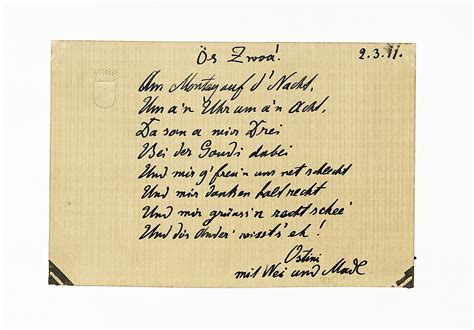 Ös Zwoa!
2.3.11.
Am Montag auf d' Nacht,
Um a'n Uhr um a'n Acht,
Da san a mir Drei
Bei der Gaudi dabei
Und mir g'freu'n uns net schlecht
Und mir danken halt recht
Und mir grüass'n recht schee'
Und dös Ander' wisst's eh!
Ostini
mit Wei und Madl